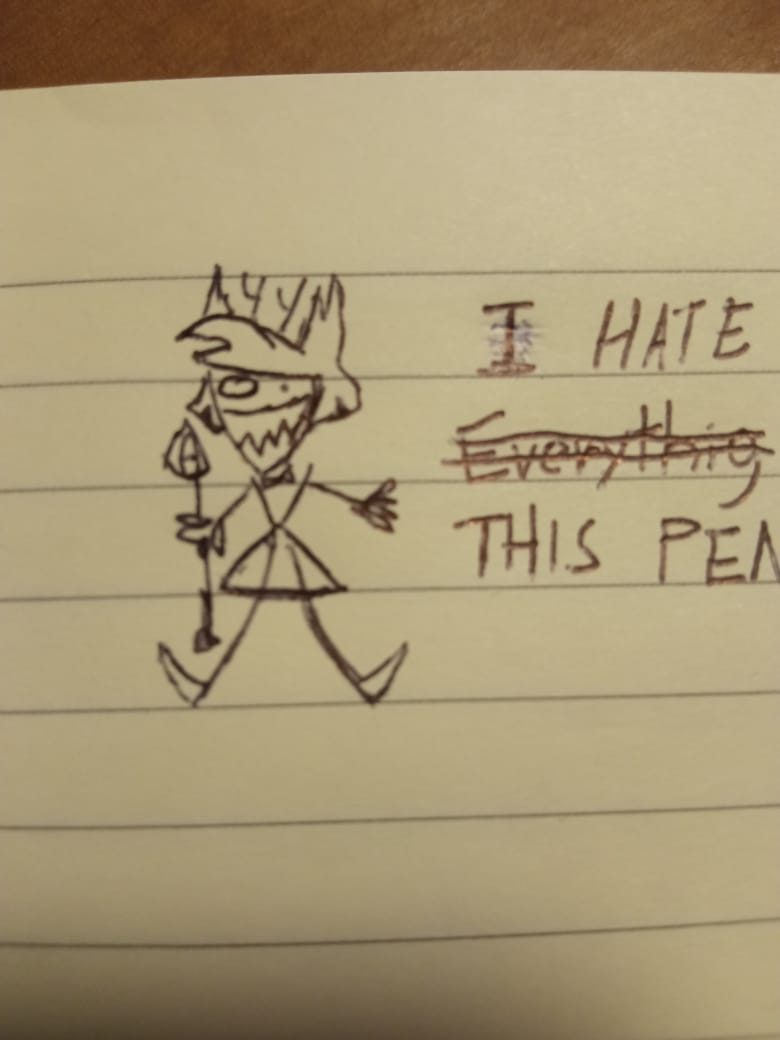 I HATE
Everything
THIS PEN